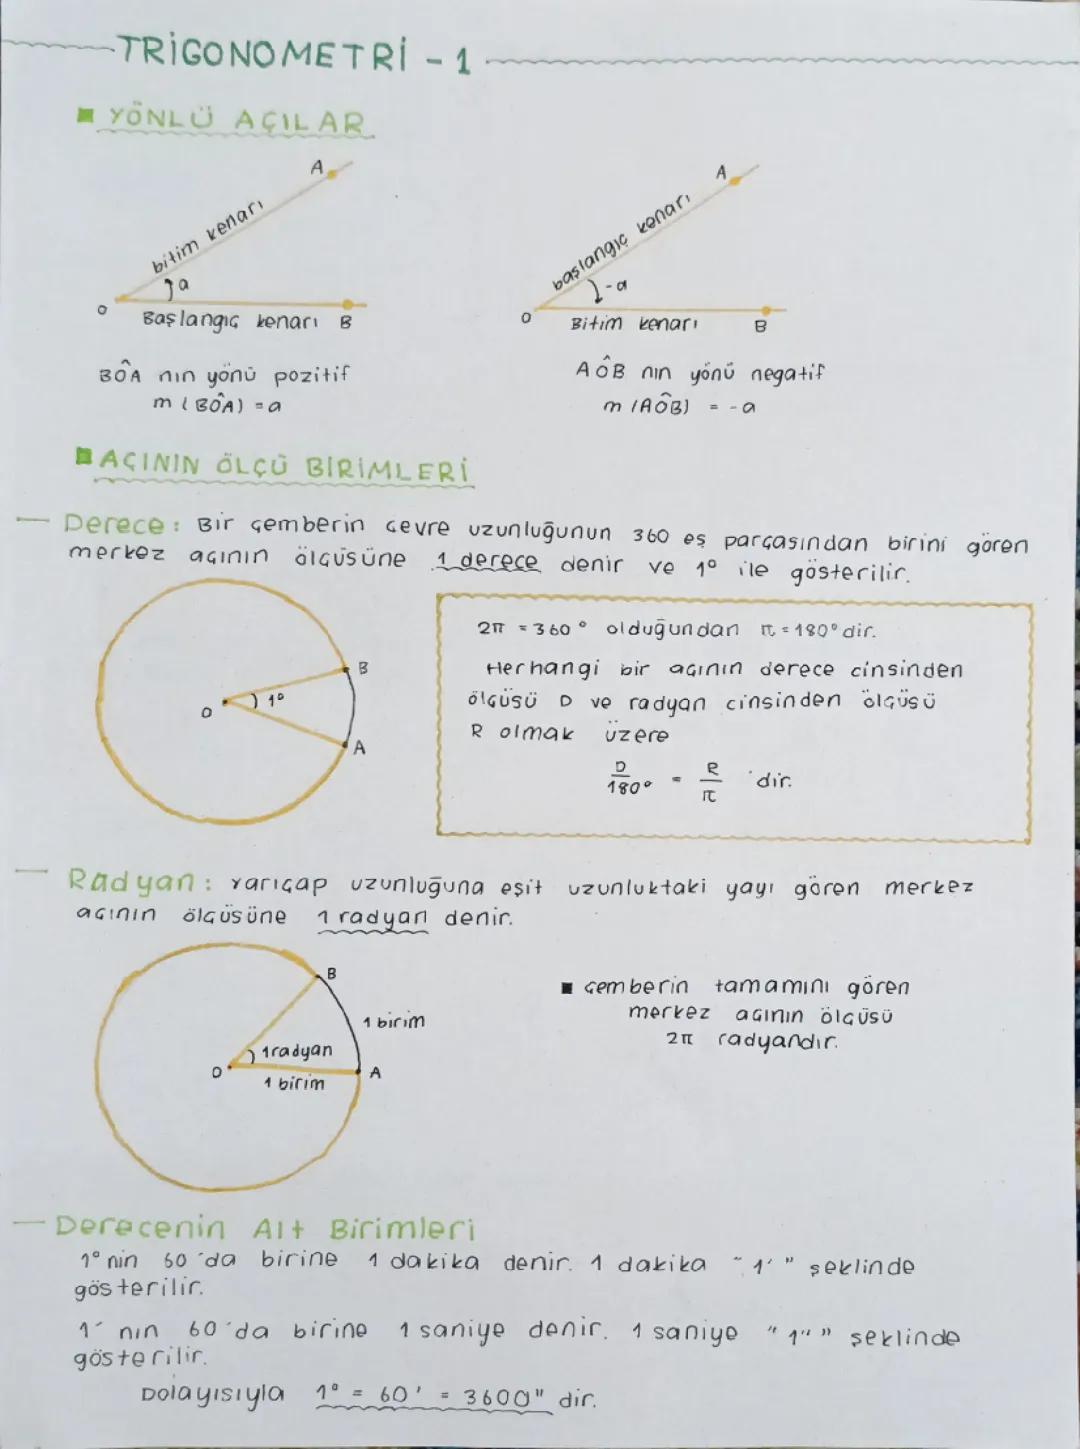 TRİGONOMETRİ - 1
YÖNLÜ AÇILAR
A
bitim kenarı
a
O
Başlangıç kenarı B
BÔA nın yönü pozitif
m (BÔA) = a
A
başlangıç kenarı
-a
O
Bitim kenarı B
AÔB nın yönü negatif
m (AÔB) = -a
AÇININ ÖLÇÜ BİRİMLERİ
Derece : Bir çemberin çevre uzunluğunun 360 eş parçasından birini gören
merkez açının ölçüsüne 1 derece denir ve 1° ile gösterilir.
B
1°
O
A
2π = 360° olduğundan π = 180° dir.
Herhangi bir açının derece cinsinden
ölçüsü D ve radyan cinsinden ölçüsü
R olmak üzere
D/180° = R/π 'dir.
Radyan : Yarıçap uzunluğuna eşit uzunluktaki yayı gören merkez
açının ölçüsüne 1 radyan denir.
B
1 birim
1radyan
O
A
1 birim
çemberin tamamını gören
merkez açının ölçüsü
2π radyandır.
Derecenin Alt Birimleri
1° nin 60 'da birine 1 dakika denir. 1 dakika "1' " şeklinde
gösterilir.
1' nın 60 'da birine 1 saniye denir. 1 saniye "1'' " şeklinde
gösterilir.
Dolayısıyla 1° = 60' = 3600" dir.